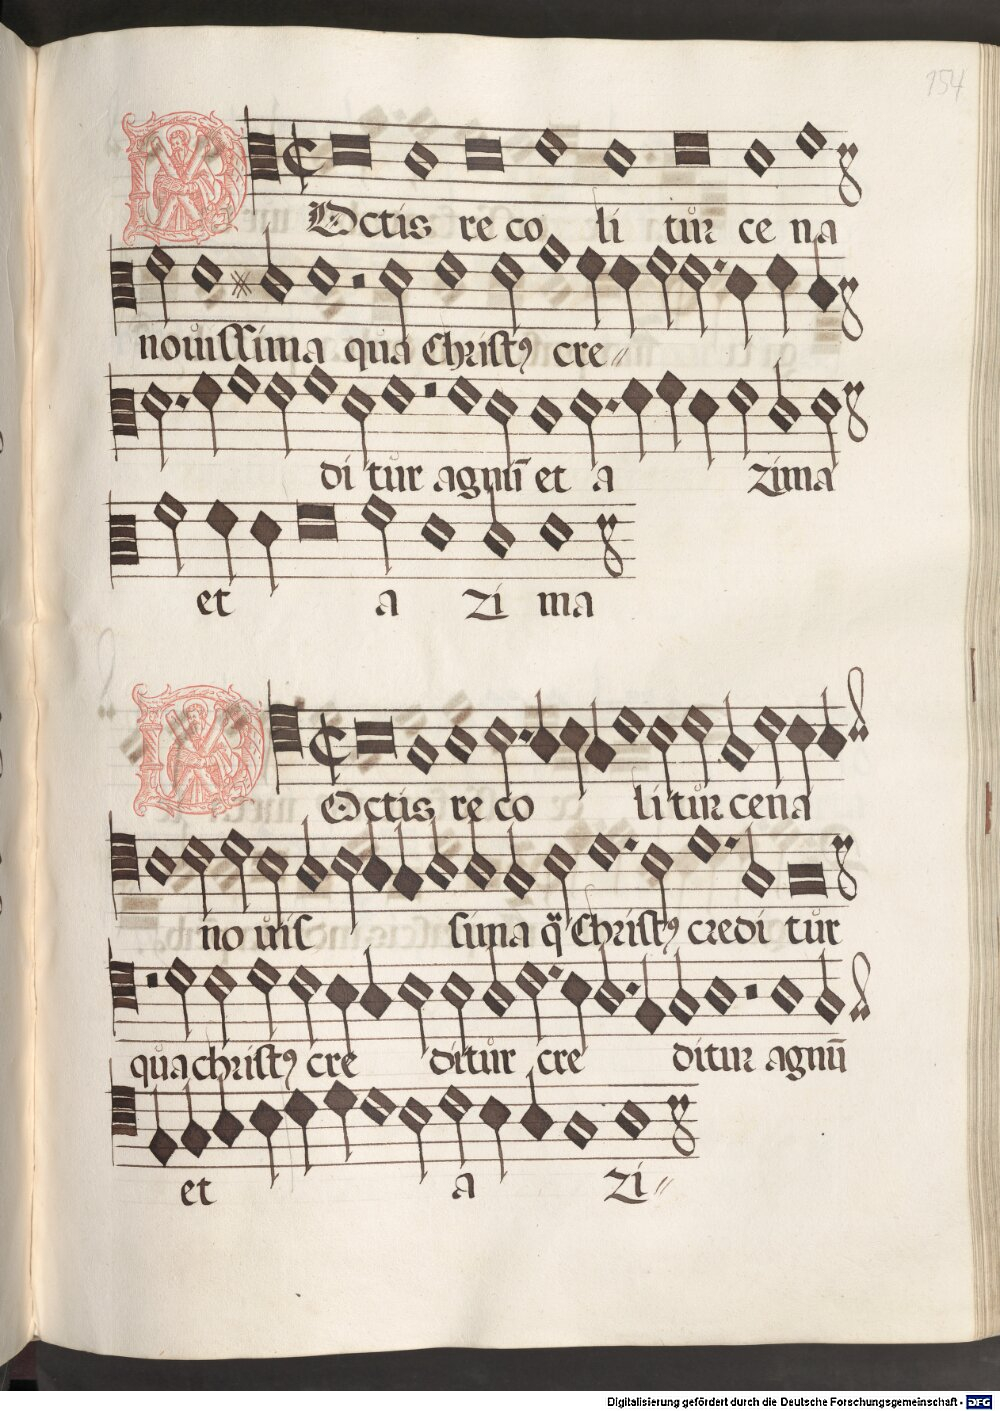 154
NOctis re co li tur ce na
nouissima qua Christꝰ cre〃
di tur agnū et a zima
et a zi ma
NOctis re co li tur cena
no uis sima q̈ Christꝰ credi tur
qua christꝰ cre ditur cre ditur agnū
et a zi〃
Digitalisierung gefördert durch die Deutsche Forschungsgemeinschaft - DFG